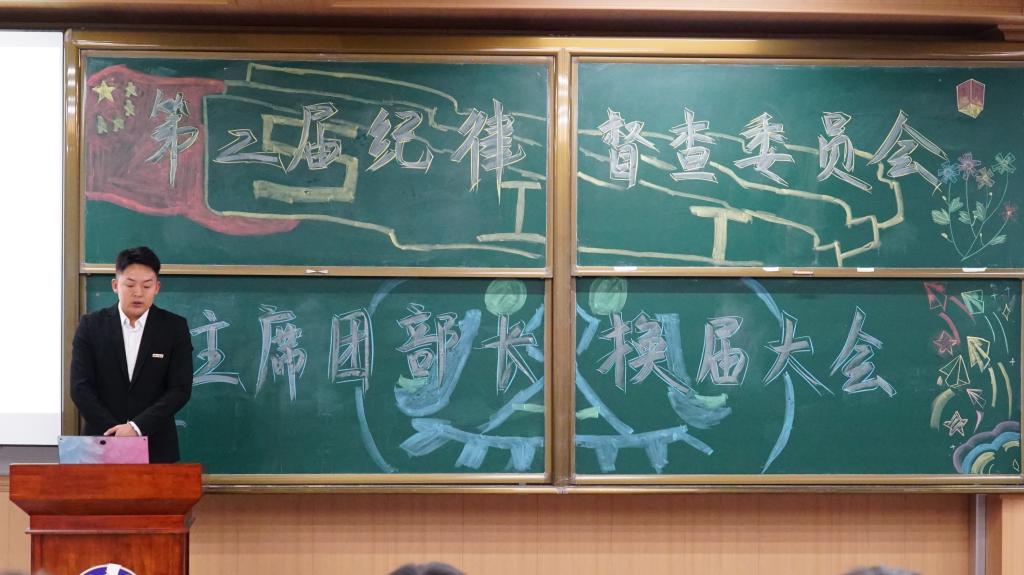 第二届纪律督查委员会
主席团部长换届大会